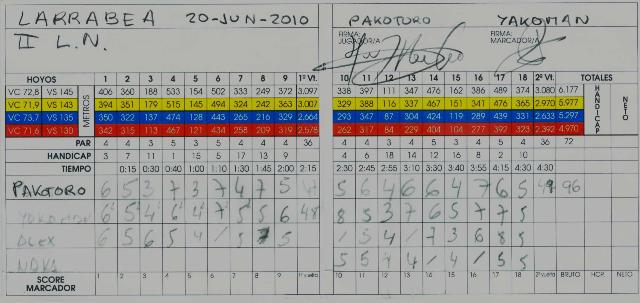 LARRABEA 20-JUN-2010 PAKOTORO YAKOMAN
II L.N. FIRMA: JUGADOR/A FIRMA: MARCADOR/A
HOYOS 1 2 3 4 5 6 7 8 9 1ª Vt. 10 11 12 13 14 15 16 17 18 2ª Vt. TOTALES
VC 72,8 VS 145 METROS 406 360 188 533 154 502 333 249 372 3.097 338 397 111 347 476 162 386 489 374 3.080 6.177 HÁNDICAP NETO
VC 71,9 VS 143 394 351 179 515 145 494 324 242 363 3.007 329 388 116 337 467 151 341 476 365 2.970 5.977
VC 73,7 VS 135 350 322 137 474 128 443 265 216 329 2.664 293 347 87 304 424 119 289 439 331 2.633 5.297
VC 71,6 VS 130 342 315 113 467 121 434 258 209 319 2.578 262 317 84 229 404 104 277 392 323 2.392 4.970
PAR 4 4 3 5 3 5 4 4 4 36 4 4 3 4 5 3 4 5 4 36 72
HANDICAP 3 7 11 1 15 5 17 13 9 4 6 18 14 12 16 8 2
TIEMPO 0:15 0:30 0:40 1:00 1:10 1:30 1:45 2:00 2:15 2:30 2:45 2:55 3:10 3:30 3:40 3:55 4:15 4:30 4:30
PAKOTORO 6 5 3 7 3 7 4 7 5 5 6 4 6 6 4 7 6 5 49 96
YAKOMAN 6 5 4 6 4 7 5 5 6 48 8 5 3 7 6 5 7 7 5
ALEX 5 6 5 4 / 5 5 / 5 4 / 7 3 6 8 5
5 5 4 4 / 4 / 5 5
SCORE MARCADOR 1 2 3 4 5 6 7 8 9 1ª vuelta 10 11 12 13 14 15 16 17 18 2ª vuelta BRUTO HCP. NETO